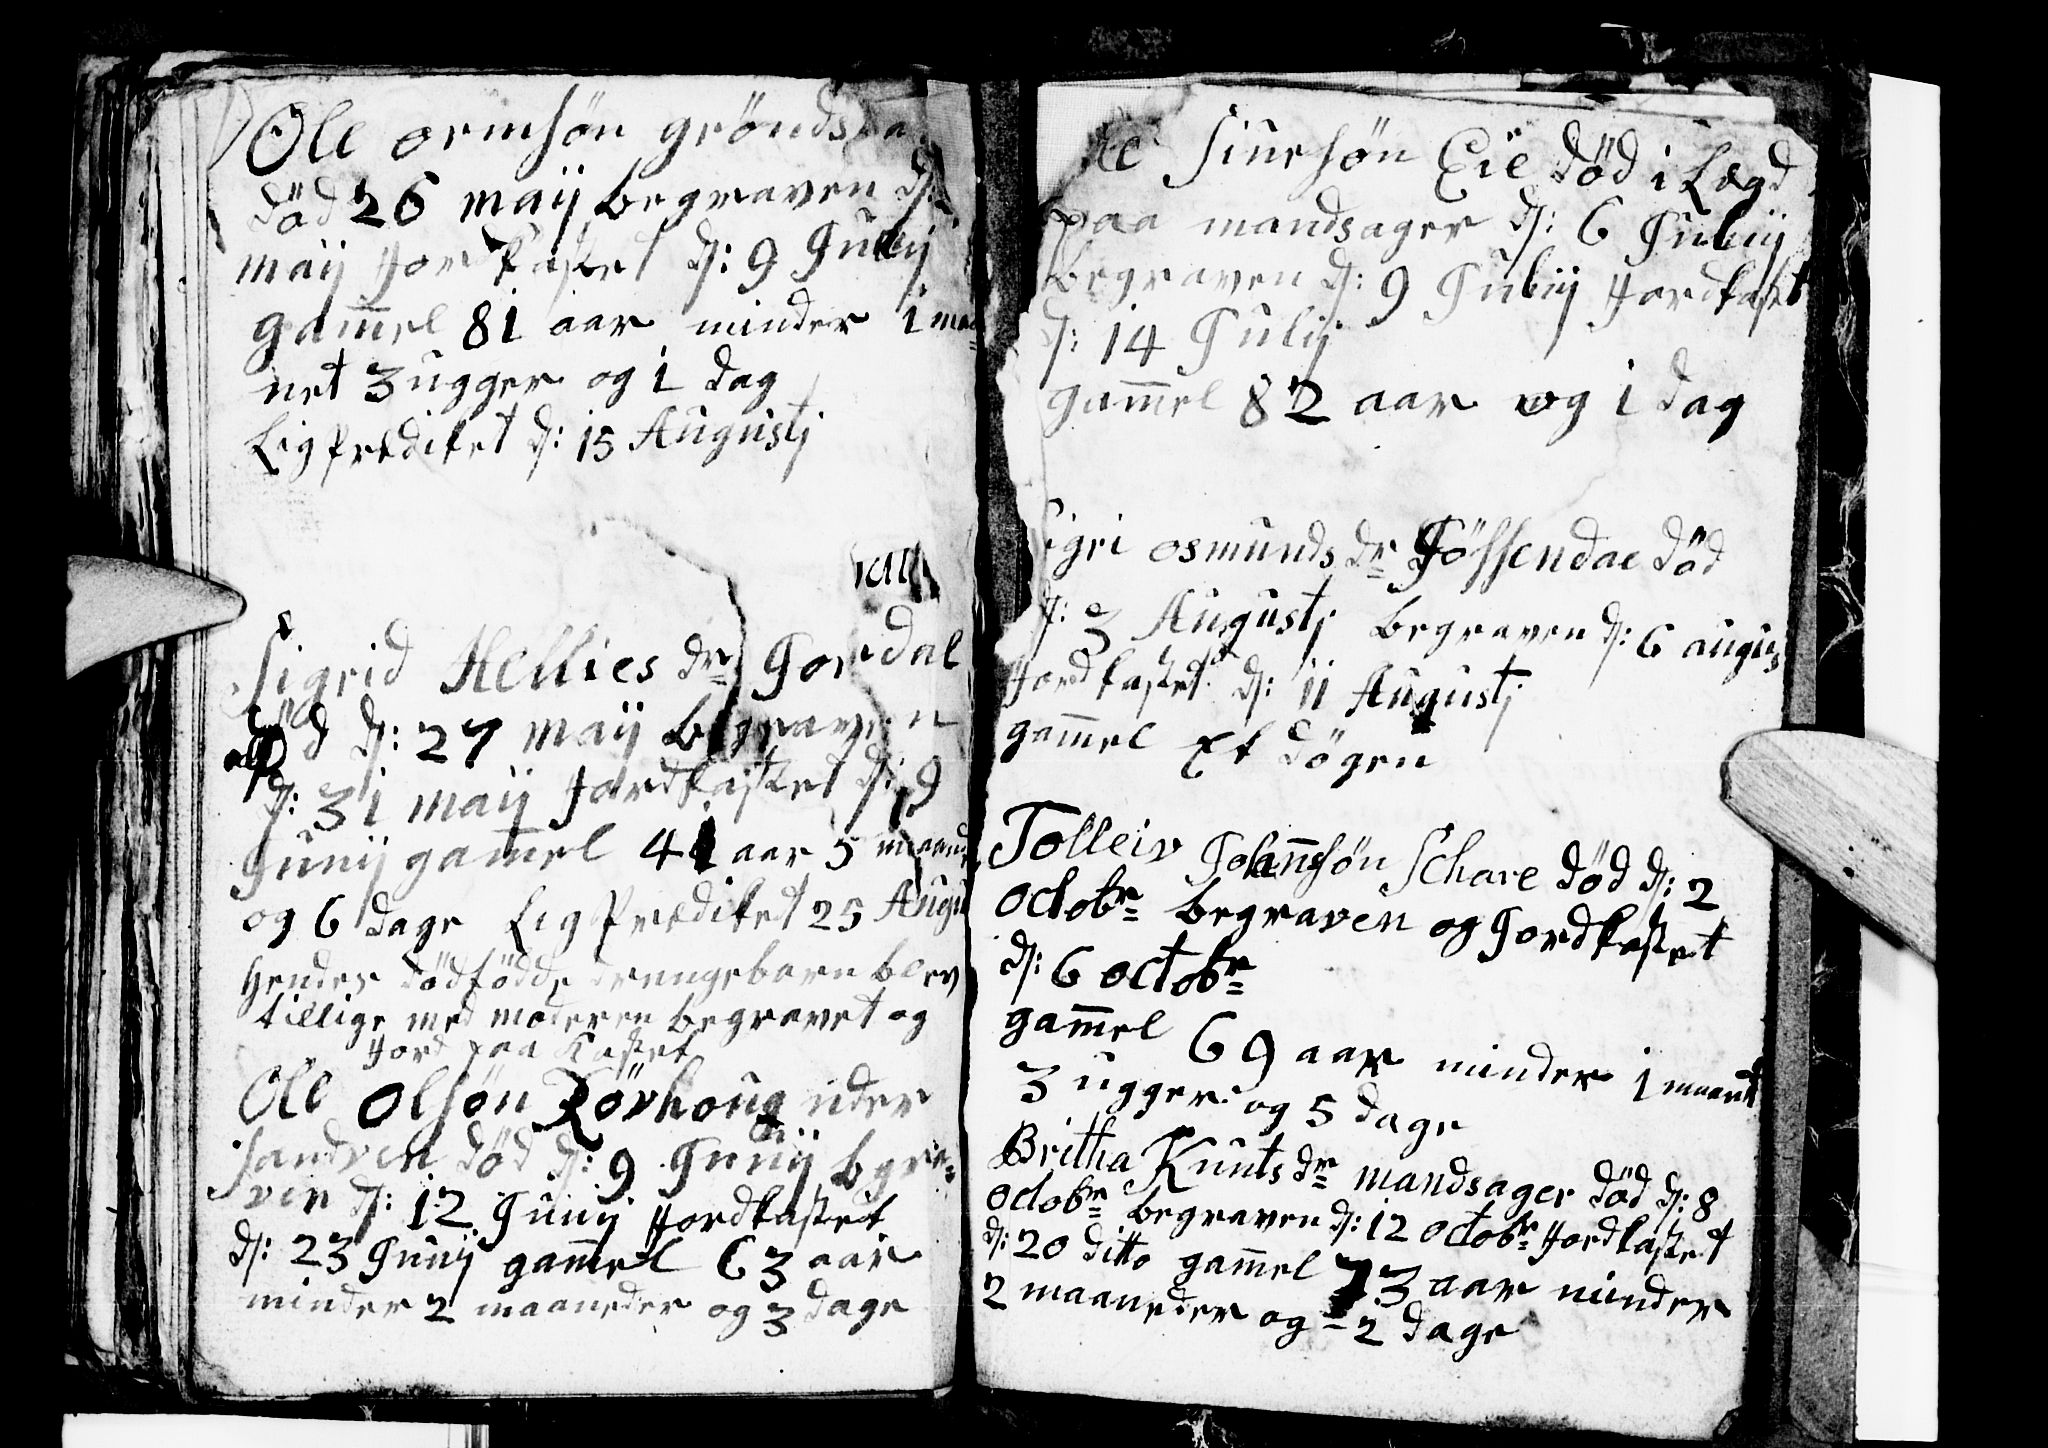 Ole ormsøn grøndsda
død 26 maij begraven d:
maij Jordkastet d: 9 Julij
gam̄el 81 aar minder 1 maa
net 3 ugger og 1 dag
Ligprædiket d: 15 Augustj
Sigrid Hellies dr Jordal
død d: 27 maij begraven
d: 31 maij Jordkastet d: 9
Junij gam̄el 41 aar 5 maand
og 6 dage Ligprædiket 25 Augu
hendes dødfødde drengebarn blev
tillige med moderen begravet og
Jord paa kastet
Ole olsøn Rørhoug ider
sandven død d: 9 Junij begra=
ven d: 12 Junij Jordkastet
d: 23 Junij gam̄el 63 aar
minder 2 maaneder og 3 dage
siursøn Eie død i Lægd
paa mandsager d: 6 Julij
begraven d: 9 Julij Jordkast
d: 14 Julij
gam̄el 82 aar og 1 dag
Sigri osmunds dr Jøssendae død
d: 3 Augustj begraven d: 6 augus
Jordkastet d: 11 Augustj
gam̄el Et døgen
Tolleiv Johan̄søn Schare død d: 2
octobr begraven og Jordkastet
d: 6 octobr
gam̄el 69 aar minder 1 maant
3 ugger og 5 dage
Britha Kunts dr mandsager død d: 8
octobr begraven d: 12 octobr Jordkastet
d: 20 ditto gam̄el 73 aar minder
2 maaneder og 2 dage